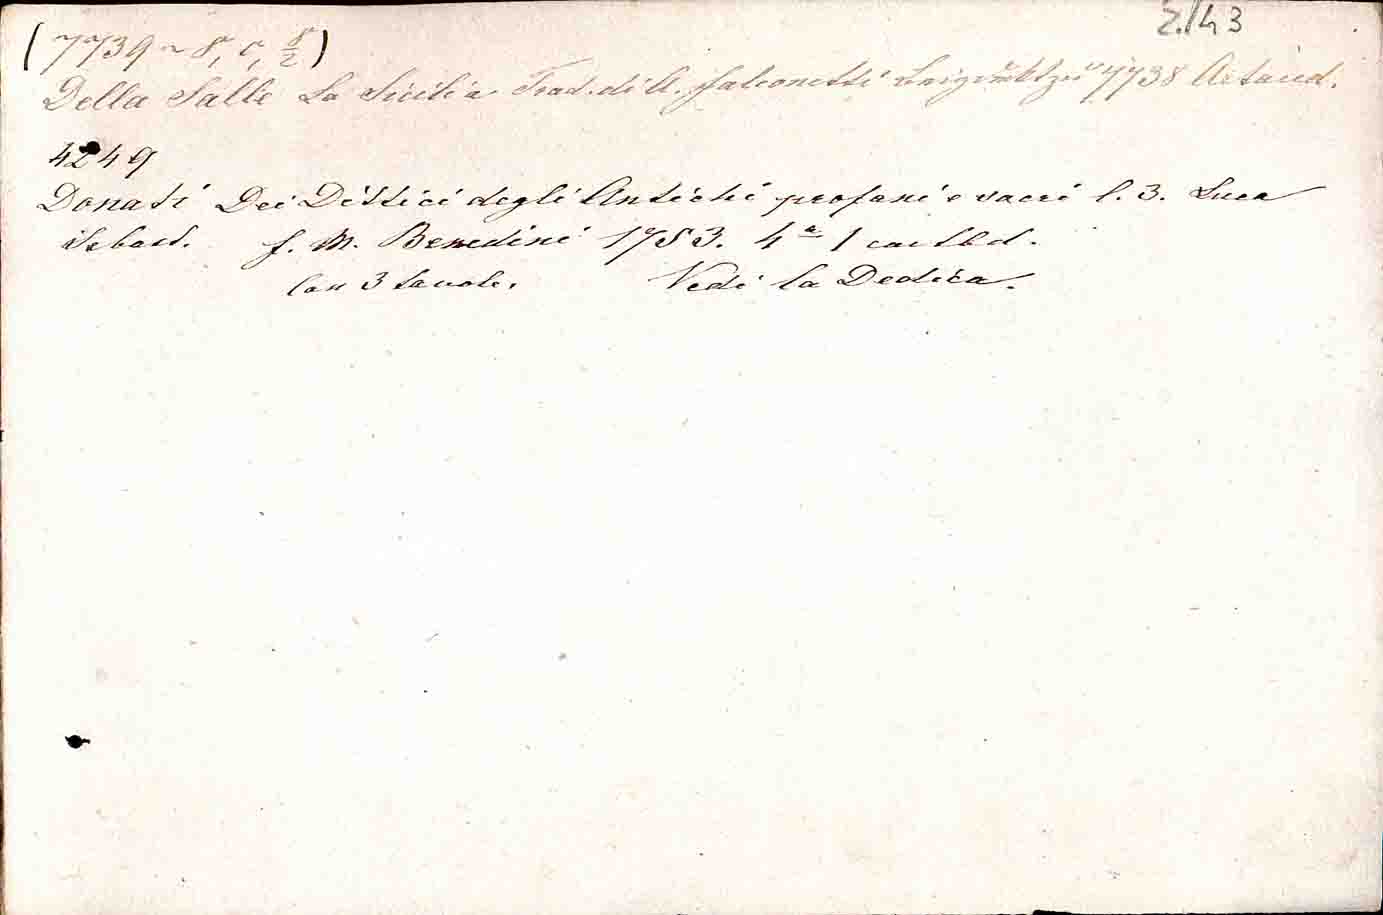 2.143
(7739 ~ 8, c, 8/2)
Della Salle La Sicilia Trad. di A. Falconetti 7738 Artaud.
4249
Donati Dei Dittici degli Antichi profani e sacri l. 3. Luca
Sebast. f. M. Benedini 1753. 4a 1 cart
Con 3 tavole. Vedi la Dedica.